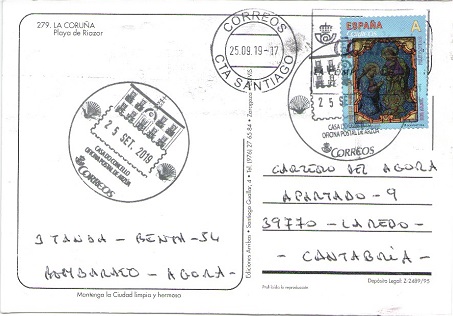 279. LA CORUÑA
Playa de Riazor
CORREOS
25.09.19-17
CTA SANTIAGO
ESPAÑA A
25 SET. 2019
CASA DO CONCELLO
OFICINA POSTAL DE
CORREOS
25 SE
CASA DO CONCELLO
OFICINA POSTAL DE
CORREOS
CARTERO DEL AGORA
APARTADO - 9
39770 - LAREDO -
- CANTABRIA -
3 TANDA - BENTA - 54
- AGORA -
Mantenga la Ciudad limpia y hermosa
Ediciones Arribas - Santiago Guallar, 4 - Tel. (976) 27 65 84 - Zaragoza
Prohibida la reproducción
Depósito Legal: Z-2489/95